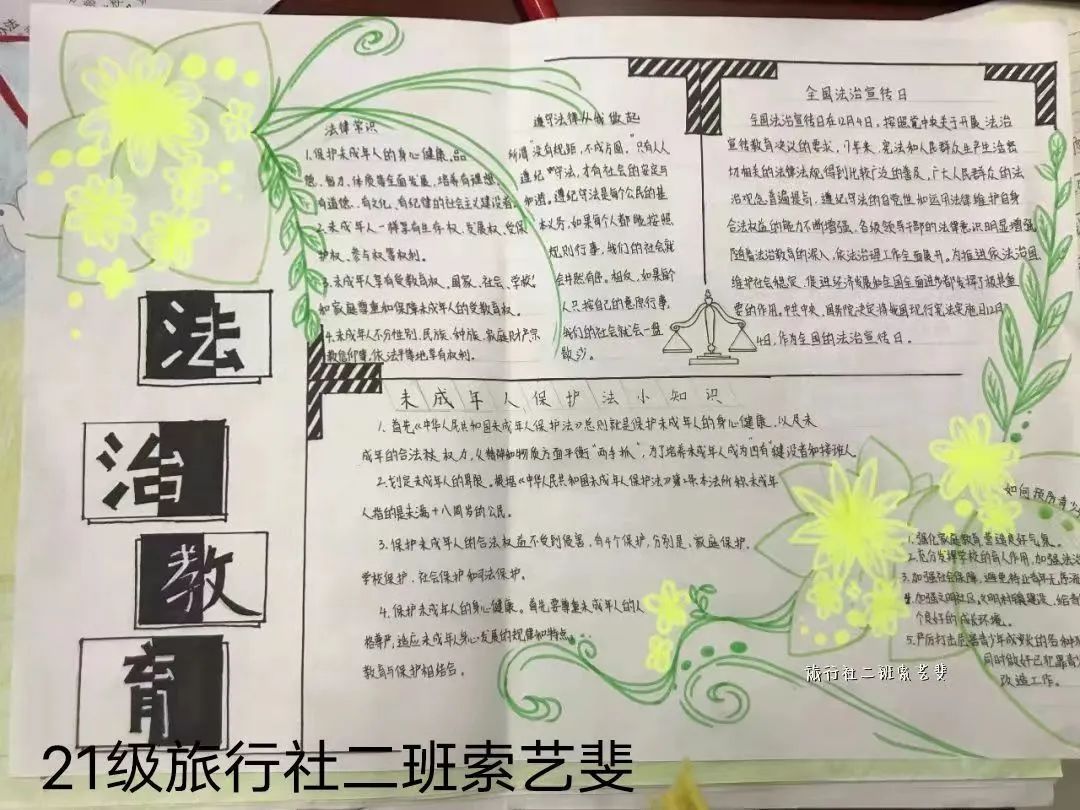 法治教育
法律常识
1.保护未成年人的身心健康。品
德、智力、体质等全面发展,培养有理想、
有道德、有文化、有纪律的社会主义建设者。
2.未成年人一样享有生存权、发展权、受保
护权、参与权等权利。
3.未成年人享有受教育权、国家、社会、学校
和家庭尊重和保障未成年人的受教育权。
4.未成年人不分性别、民族、种族、家庭财产、宗
教信仰等,依法平等地享有权利。
遵守法律从我做起
所谓没有规距,不成方圆”只有人人
遵纪守法,才有社会的安定与
和谐,遵纪守法是每个公民的基
本义务,如果每个人都能按照
规则行事,我们的社会就
会井然有序。相反,如果每个
人只按自己的意愿行事,
我们的社会就会一盘
散沙。
全国法治宣传日
全国法治宣传日在12月4日。按照党中央关于开展法治
宣传教育决议的要求,17年来,宪法和人民群众生产生活密
切相关的法律法规得到比较广泛的普及,广大人民群众的法
治观念普遍提高,遵纪守法的自觉性和运用法律维护自身
合法权益的能力不断增强。各级领导干部的法律意识明显增强
随着法治教育的深入,依法治理工作全面展开。为推进依法治国
维护社会稳定、促进经济发展和全国全面进步都发挥了极其重
要的作用。中共中央、国务院决定将我国现行宪法实施日12月
4日,作为全国的法治宣传日。
未成年人保护法小知识
1.首先《中华人民共和国未成年人保护法》总则就是保护未成年人的身心健康,以及未
成年的合法权力,从精神和物质方面平衡“两手抓”,为了培养未成年人成为“四有”建设者和接班人
2.划定未成年人的界限。根据《中华人民共和国未成年人保护法》第2条本法所称未成年
人指的是未满十八周岁的公民。
3.保护未成年人的合法权益不受到侵害,有4个保护,分别是:家庭保护、
学校保护、社会保护和司法保护。
4.保护未成年人的身心健康。首先要尊重未成年人的人
格尊严,适应未成年人身心发展的规律和特点
教育与保护相结合。
如何预防青少
1.强化家庭教育营造良好气氛。
2.充分发挥学校的育人作用,加强法治
3.加强社会保障,避免待业青年无所
4.加强文明社区,文明村镇建设,给青
个良好的成长环境。
5.严厉打击危害青少年成长的各种
同时做好已犯罪青
改造工作。
旅行社二班索艺斐
21级旅行社二班索艺斐